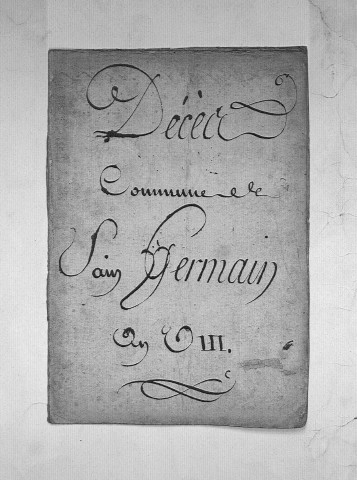 Décès
Commune de
Sain Germain
An VIII.